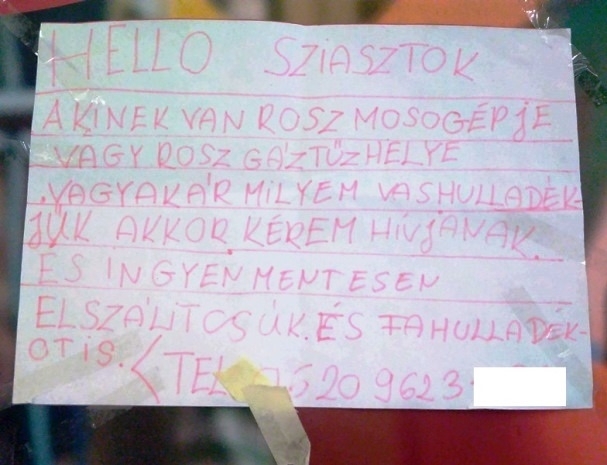 HELLO SZIASZTOK
AKINEK VAN ROSZ MOSOGÉPJE
VAGY ROSZ GÁZTŰZHELYE
VAGYAKÁR MILYEM VASHULLADÉK-
JÜK AKKOR KÉREM HÍVJANAK.
ÉS INGYENMENTESEN
ELSZÁLITCSÚK. ÉS FAHULLADÉK-
OTIS. TEL 20 9623